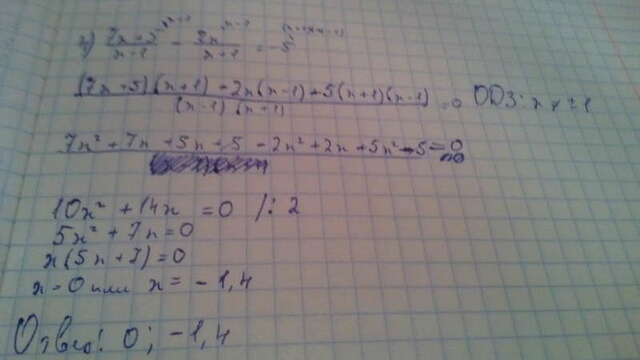 2) (7x+5)/(x-1) - 2x/(x+1) = -5
((7x+5)(x+1) - 2x(x-1) + 5(x+1)(x-1))/((x-1)(x+1)) = 0 ОДЗ: x ≠ ±1
7x² + 7x + 5x + 5 - 2x² + 2x + 5x² - 5 = 0
10x² + 14x = 0 /: 2
5x² + 7x = 0
x(5x+7)=0
x=0 или x = -1,4
Ответ: 0; -1,4